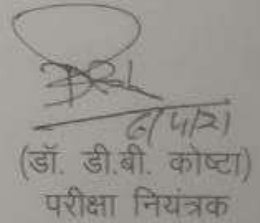 (डॉ. डी.बी. कोष्टा)
परीक्षा नियंत्रक